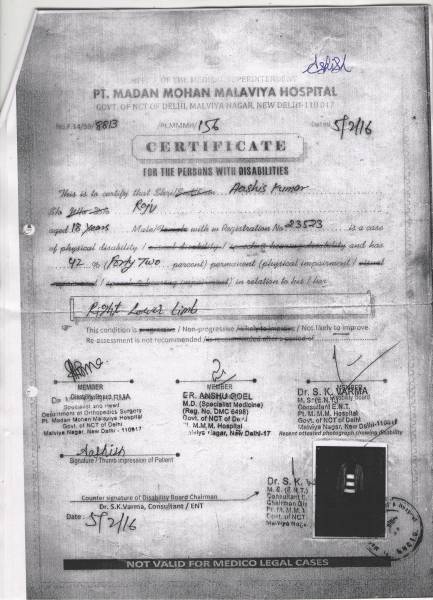 Ashish
OFFICE OF THE MEDICAL SUPERINTENDENT
PT. MADAN MOHAN MALAVIYA HOSPITAL
GOVT. OF NCT OF DELHI, MALVIYA NAGAR, NEW DELHI-110017
No.F.14/59/ 8813 Pt.MMMH/ 156 Dated 5/2/16
CERTIFICATE
FOR THE PERSONS WITH DISABILITIES
This is to certify that Shri/ Aashis Kumar
S/o Raju
aged 18 years Male/ with Registration No 23523 is a case
of physical disability / and has
42 % (Forty Two percent) permanent (physical impairment /
in relation to his / her
Right Lower Limb
This condition is progressive / Non-progressive / likely to improve / Not likely to improve.
Re-assessment is not recommended / is recommended after a period of
MEMBER
Disability Board
Specialist and Head
Department of Orthopedics Surgery
Pt. Madan Mohan Malaviya Hospital
Govt. of NCT of Delhi
Malviya Nagar, New Delhi - 110017
MEMBER
DR. ANSHU GOEL
M.D. (Specialist Medicine)
(Reg. No. DMC 6498)
Pt. M.M.M. Hospital
Govt. of NCT of Delhi
Malviya Nagar, New Delhi-17
MEMBER
Dr. S. K. VARMA
Disability Board
Consultant E.N.T.
Pt. M.M.M. Hospital
Govt. of NCT of Delhi
Malviya Nagar, New Delhi-110017
Recent attested photograph showing disability
Aashiss
Signature / Thumb impression of Patient
Counter signature of Disability Board Chairman
Dr. S.K.Varma, Consultant / ENT
Date : 5/2/16
Dr. S. K.
M. S. (E.N.T.)
Consultant
Chairman
Pt. M.M.M.
Govt. of NCT
Malviya Nagar
NOT VALID FOR MEDICO LEGAL CASES